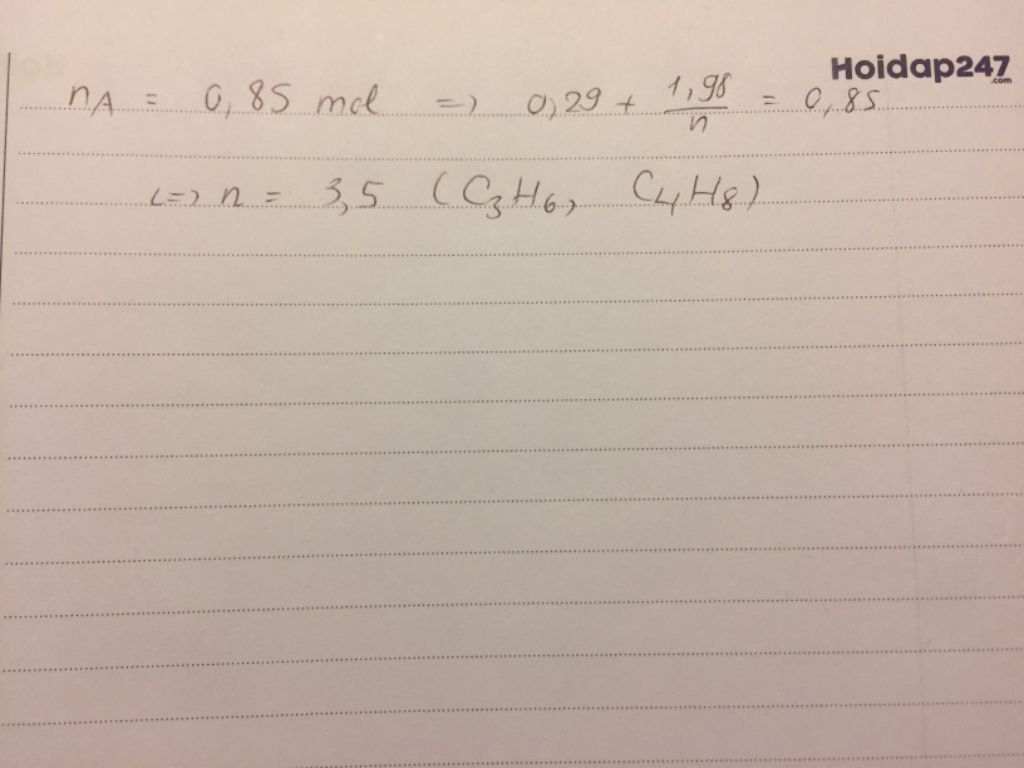 Hoidap247
.com
nA = 0,85 mol => 0,29 + 1,98/n = 0,85
<=> n = 3,5 (C3H6, C4H8)